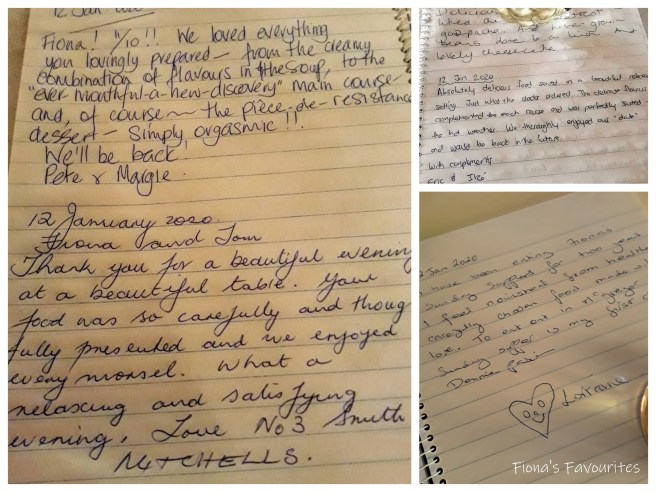 12 Jan
Fiona! 11/10!! We loved everything
you lovingly prepared — from the creamy
combination of flavours in the soup, to the
"ever-mouthful-a-new-discovery" main course —
and, of course — the pièce-de-resistance
dessert — Simply orgasmic!!.
We'll be back!
Pete & Margie.
12 January 2020.
Fiona and Tom
Thank you for a beautiful evening
at a beautiful table. Your
food was so carefully and though
fully presented and we enjoyed
every morsel. What a
relaxing and satisfying
evening, Love No 3 Smith
MITCHELLS.
Delicious
gazpacho. And
beans done And
lovely cheesecake
12 Jan 2020
Absolutely delicious food served in a beautiful relaxed
setting. Just what the doctor ordered. The flavours
complemented the each course and was perfectly suited
the hot weather. We thoroughly enjoyed our "date"
and would be back in the future.
With compliments
Eric &
Jan 2020
have been eating Fiona's
Sunday Supper for two years
I feel nourished from health
carefully chosen food made w
love. To eat out in
Sunday supper is my first
Lorraine
Fiona's Favourites